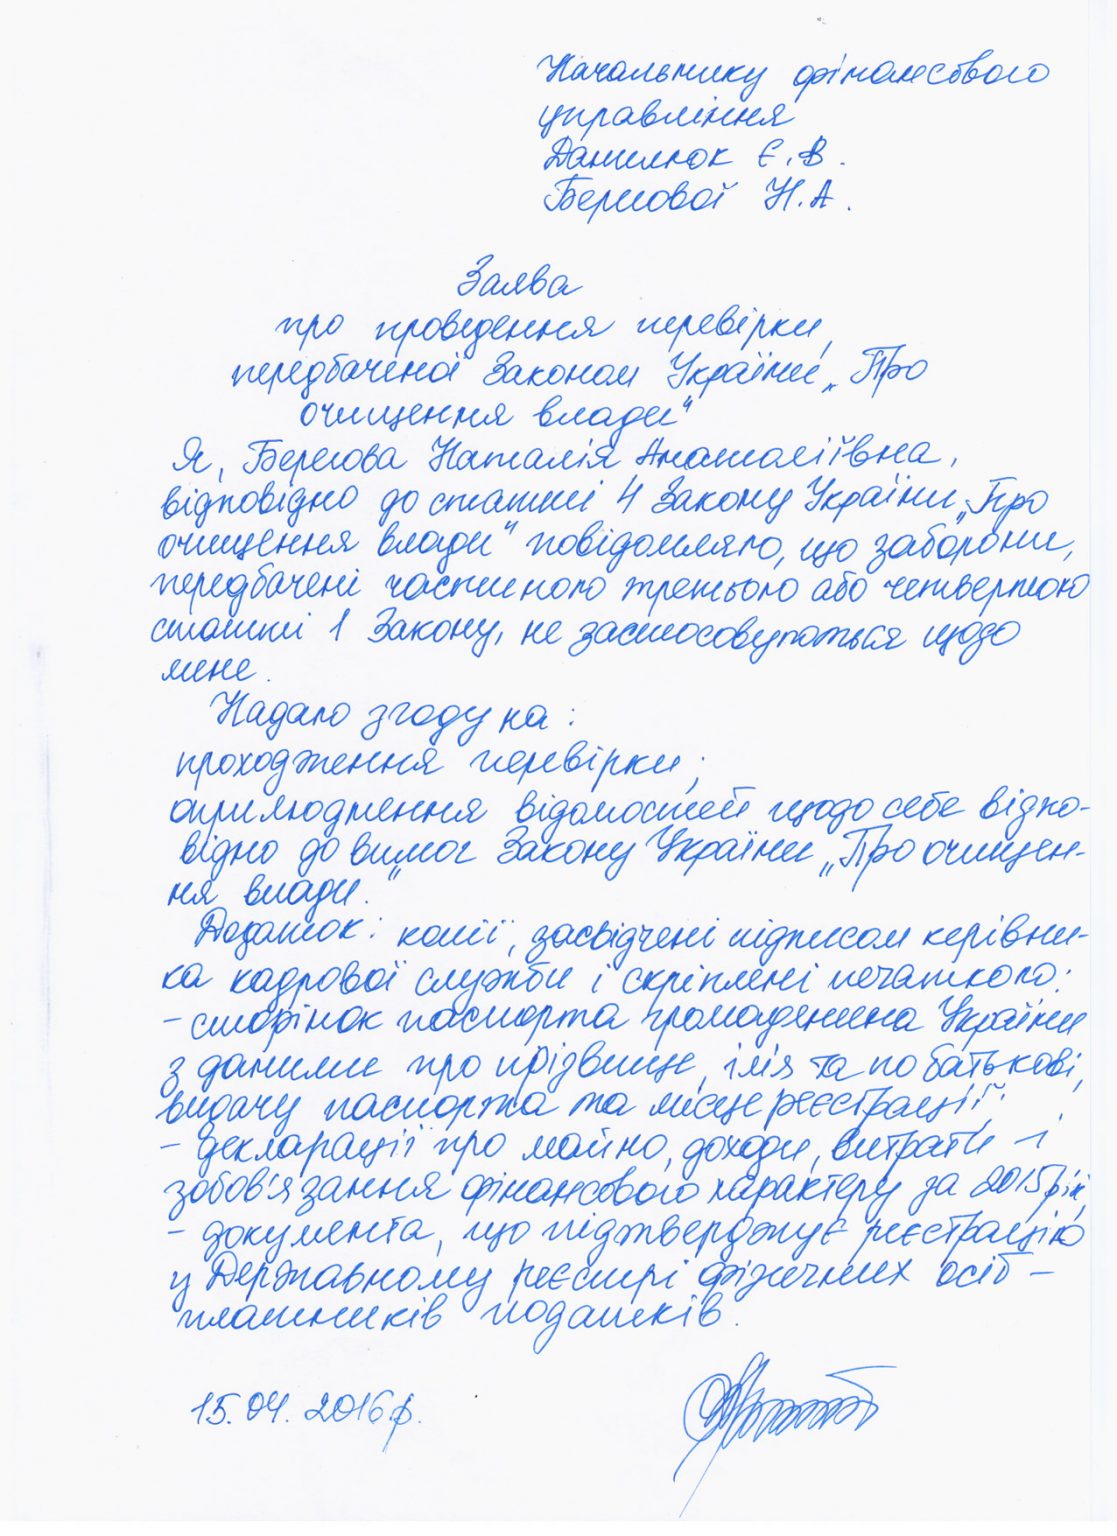 Начальнику фінансового
управління
Данилюк Є.В.
Берегової Н.А.
Заява
про проведення перевірки,
передбаченої Законом України „Про
очищення влади“
Я, Берегова Наталія Анатоліївна,
відповідно до статті 4 Закону України „Про
очищення влади“ повідомляю, що заборони,
передбачені частиною третьою або четвертою
статті 1 Закону, не застосовуються щодо
мене.
Надаю згоду на:
проходження перевірки;
оприлюднення відомостей щодо себе відпо-
відно до вимог Закону України „Про очищен-
ня влади.“
Додаток: копії, засвідчені підписом керівни-
ка кадрової служби і скріплені печаткою:
- сторінок паспорта громадянина України
з даними про прізвище, ім'я та по батькові,
видачу паспорта та місце реєстрації;
- декларації про майно, доходи, витрати і
зобов'язання фінансового характеру за 2015 рік;
- документа, що підтверджує реєстрацію
у Державному реєстрі фізичних осіб -
платників податків.
15.04.2016р.